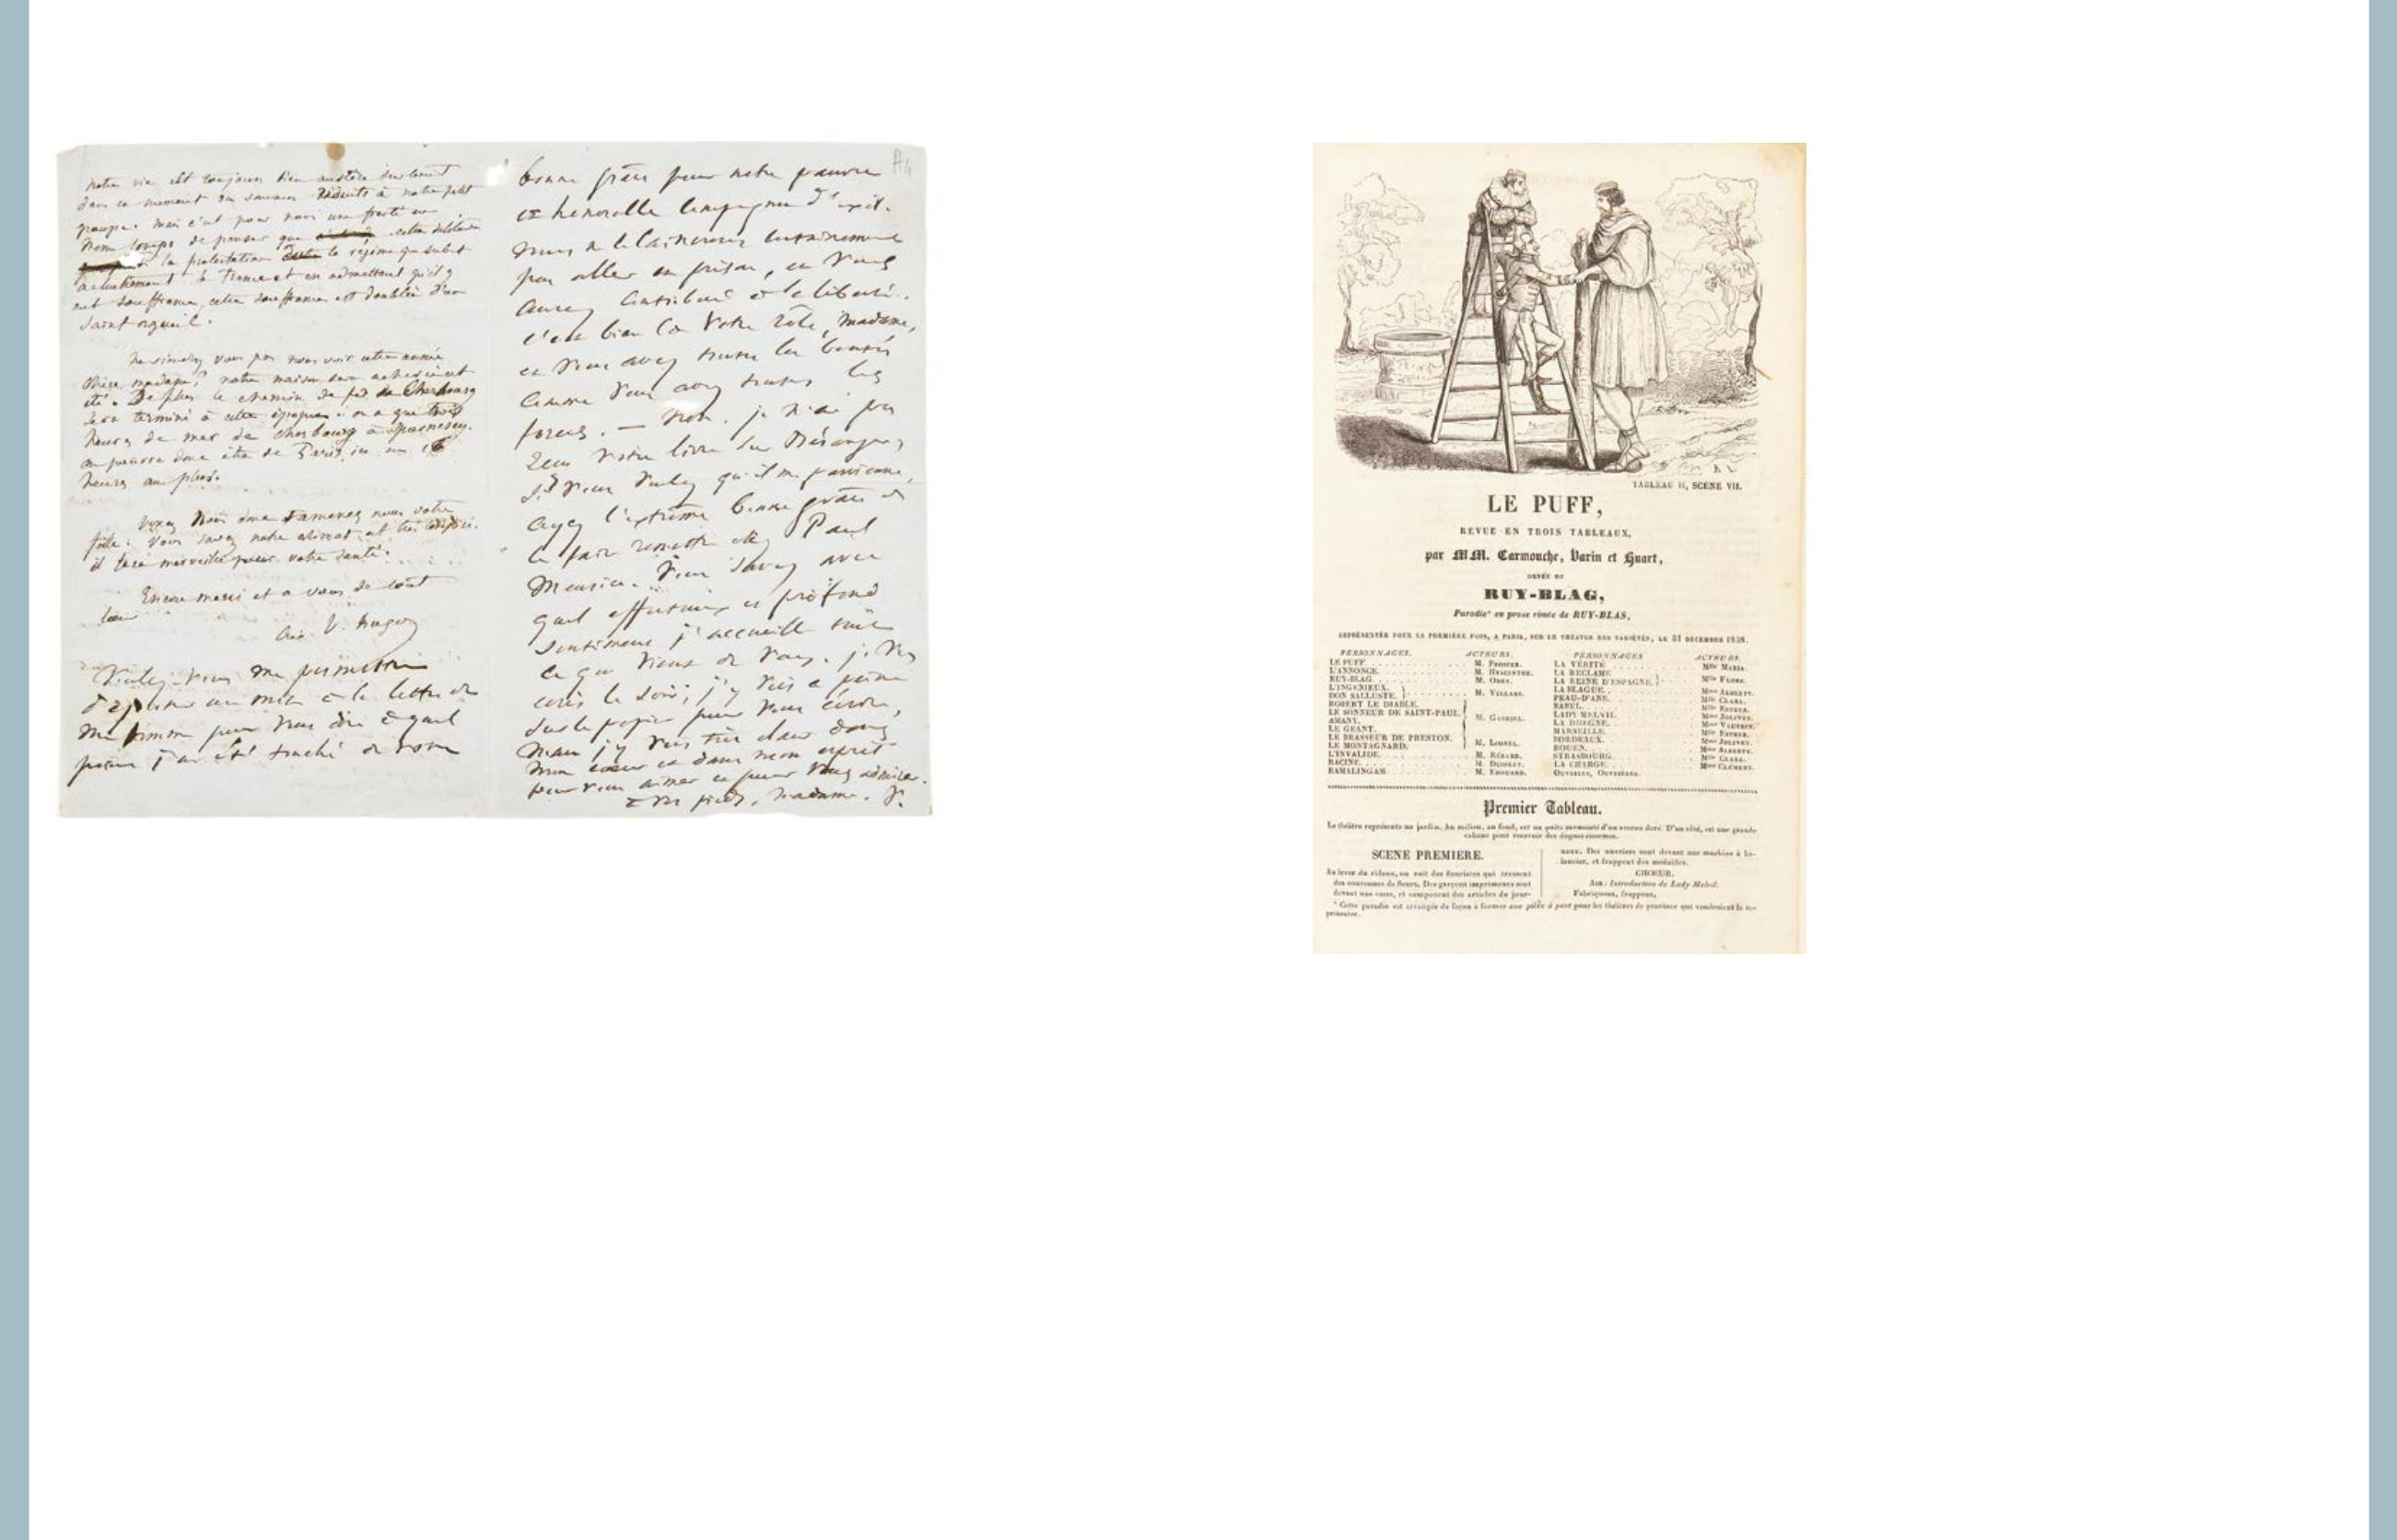 notre vie est toujours bien austère surtout
dans ce moment où sommes réduits à notre petit
groupe. mais c'est pour nous une fierté en
même temps de penser que cette solitude
la protestation contre le régime que subit
actuellement la France et en admettant qu'il y
ait souffrance, cette souffrance est doublée d'un
saint orgueil.
ne viendrez vous pas nous voir cette année
chère madame? notre maison sera achevée cet
été. De plus le chemin de fer de Cherbourg
sera terminé à cette époque. on a que trois
heures de mer de cherbourg à guernesey.
on pourra donc être de Paris ici en 16
heures au plus.
venez nous donc amenez nous votre
fille. vous savez notre climat est très
il fera merveille pour votre santé.
Encore merci et a vous de tout
coeur
V. hugo
Voulez-vous me permettre
d'ajouter un mot à la lettre de
ma femme pour vous dire à quel
point j'ai été touché de votre
A4
bonne grâce pour notre pauvre
et honorable compagnon d'exil.
nous
pas aller en prison, et vous
aurez contribué à le libérer.
c'est bien là votre rôle, madame,
et vous avez toutes les bontés
comme vous avez toutes les
forces. — non. je n'ai pas
reçu votre livre sur Béranger,
si vous voulez qu'il me parvienne,
ayez l'extrême bonne grâce de
le faire remettre chez Paul
Meurice. Vous savez avec
quel effusion et profond
sentiment j'accueille tout
ce qui vient de vous. je vous
écris le soir; j'y vois à peine
sur le papier pour vous écrire,
mais j'y vois très clair dans
mon coeur et dans mon esprit
pour vous aimer et pour vous admirer.
à vos pieds, madame. V.
TABLEAU II, SCÈNE VII.
LE PUFF,
REVUE EN TROIS TABLEAUX,
par MM. Carmouche, Varin et Huart,
ORNÉE DE
RUY-BLAG,
Parodie* en prose rimée de RUY-BLAS,
REPRÉSENTÉE POUR LA PREMIÈRE FOIS, A PARIS, SUR LE THÉATRE DES VARIÉTÉS, LE 31 DÉCEMBRE 1838.
PERSONNAGES. ACTEURS.
LE PUFF M. Prosper.
L'ANNONCE. M. Hyacinthe.
RUY-BLAG. M. Odry.
L'INGÉNIEUX.
DON SALLUSTE. M. Villars.
ROBERT LE DIABLE.
LE SONNEUR DE SAINT-PAUL.
AMANY. M. Gabriel.
LE GÉANT.
LE BRASSEUR DE PRESTON.
LE MONTAGNARD. M. Lionel.
L'INVALIDE. M. Rénard.
RACINE. M. Dussert.
RAMALINGAM. M. Edouard.
PERSONNAGES ACTEURS.
LA VÉRITÉ Mlle Maria.
LA RÉCLAME
LA REINE D'ESPAGNE. Mlle Flore.
LA BLAGUE. Mme Alberty.
PEAU-D'ANE. Mlle Clara.
BABEL. Mlle Esther.
LADY MELVIL. Mme Jolivet.
LA DUÈGNE. Mme Vautrin.
MARSEILLE. Mlle Esther.
BORDEAUX. Mme Jolivet.
ROUEN. Mme Alberty.
STRASBOURG. Mlle Clara.
LA CHARGE. Mme Clément.
Ouvriers, Ouvrières.
Premier Tableau.
Le théâtre représente un jardin. Au milieu, au fond, est un puits surmonté d'un anneau doré. D'un côté, est une grande
cabane pour recevoir des dogues énormes.
SCENE PREMIERE.
Au lever du rideau, on voit des fleuristes qui tressent
des couronnes de fleurs. Des garçons imprimeurs sont
devant une casse, et composent des articles de jour-
naux. Des ouvriers sont devant une machine à ba-
lancier, et frappent des médailles.
CHOEUR.
Air: Introduction de Lady Melvil.
Fabriquons, frappons,
* Cette parodie est arrangée de façon à former une pièce à part pour les théâtres de province qui voudraient la re-
présenter.